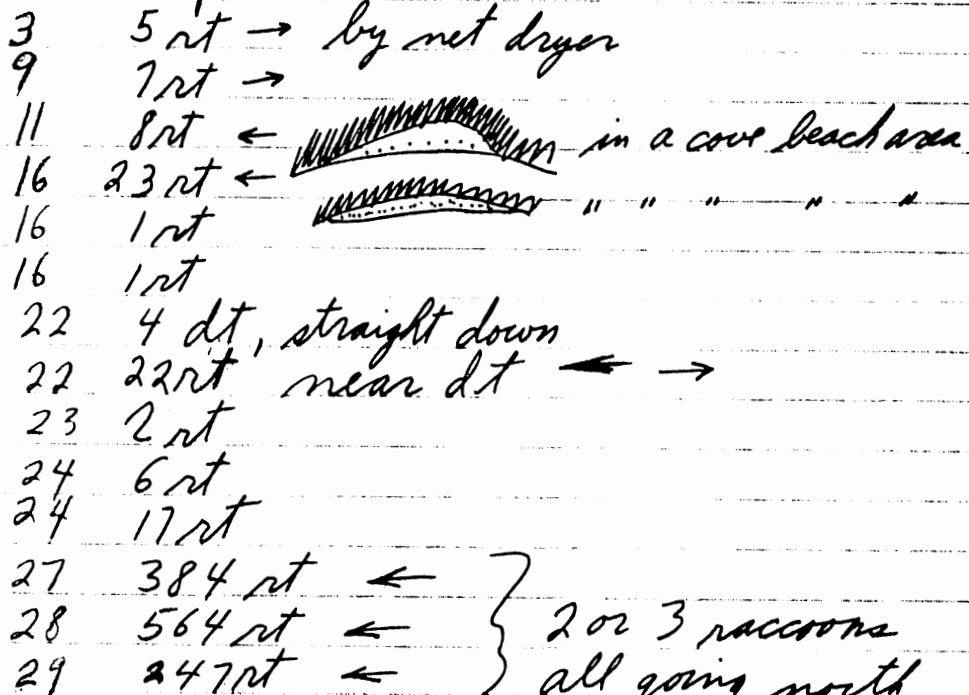 3 5 rt → by net dryer
9 7 rt →
11 8 rt ← in a cove beach area
16 23 rt ← " " " " "
16 1 rt
16 1 rt
22 4 dt, straight down
22 22 rt near dt ← →
23 2 rt
24 6 rt
24 17 rt
27 384 rt ←
28 564 rt ← 2 or 3 raccoons
29 247 rt ← all going north